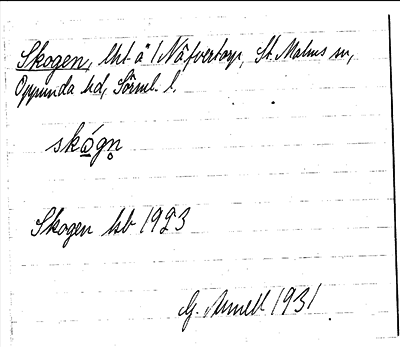 Skogen, lht å 1 Näfvertorp, St. Malms sn,
Oppunda hd, Söml. l.
skógn̥
Skogen hb 1923
G. Arnell 1931